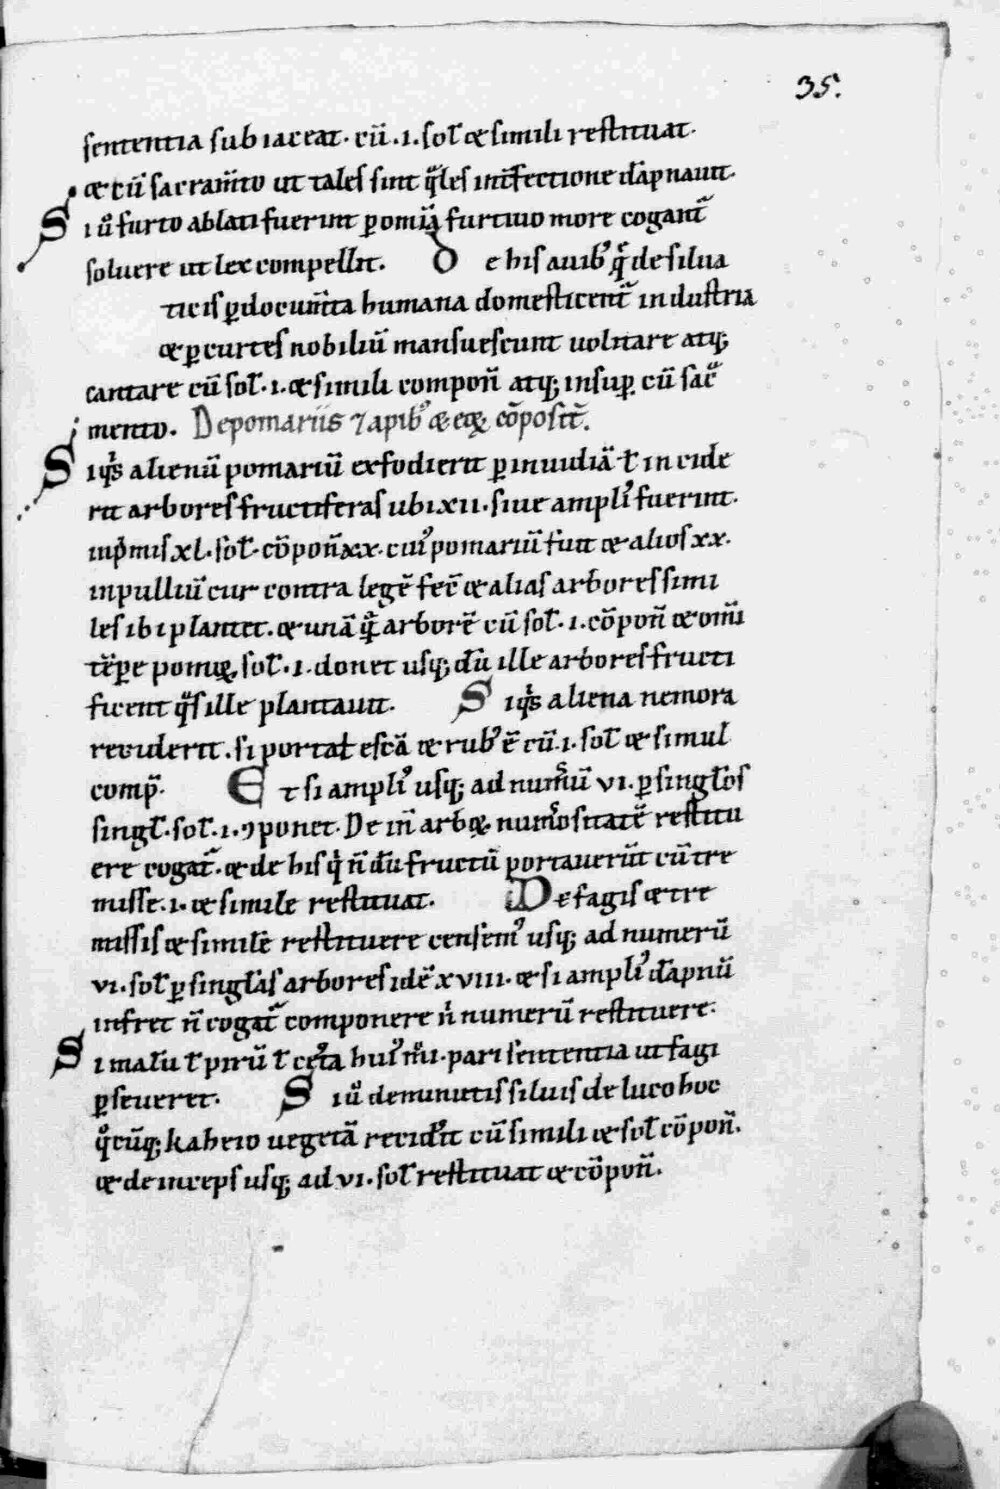 35.
sententia subiaceat. cū .i. sol̄ & simili restituat.
& cū sacram̄to ut tales sint q̄les interfectione dāpnauit.
Si ū furto ablati fuerint p om̄ia furtiuo more coganꞇ̄
soluere ut lex compellit. De his auib; q̄ de silua
ticis p documta humana domesticenꞇ̄ industria
& p curtes nobiliū mansuescunt uolitare atq;
cantare cū sol̄ .i. & simili compon̄ atq; insup cū sac̄
mento. De pomariis ⁊ apib; & eoꝝ cōposit̄.
Si q̇s alienū pomariū exfodierit p inuidiā ł incide
rit arbores fructiferas ubi xii. siue ampli᾽ fuerint.
inp̄mis xl. sol̄. cōpon̄ xx. cui᾽ pomariū fuit & alios xx.
inpulliū cur contra legē fec̄ & alias arbores simi
les ibi plantet. & unā q̄q̄ arborē cū sol̄. i. cōpon̄ & om̄i
tēpe pomiꝝ sol̄ .i. donet usq; dū ille arbores fructi
ficent q̄s ille plantauit. Si q̇s aliena nemora
reciderit. si portat escā & rub᾽ ē cū .i. sol̄ & simul
comp̄. Et si ampli᾽ usq; ad num̄ū vi. p singl̄os
singl̄. sol̄ .i. ꝯponet. De in̄ arboꝝ num̄ositatē restitu
ere cogaꞇ̄. & de his q̇ n̄ dū fructū portauerūt cū tre
misse .i. & simile restituat. De fagis & tre
missis & similē restituere censem᾽ usq; ad numerū
vi. sol̄ p singl̄as arbores idē xviii. & si ampli᾽ dāpnū
infret n̄ cogaꞇ̄ componere n̄ numerū restituere.
Si malū ł pirū ł cet̄a hui᾽m̄i. pari sententia ut fagi
pseueret. Si ū deminutis siluis de luco hoc
q̊cūq; kaheio uegetā recid̄it cū simili & sol̄ cōpon̄.
& deinceps usq; ad vi. sol̄ restituat & cōpon̄.